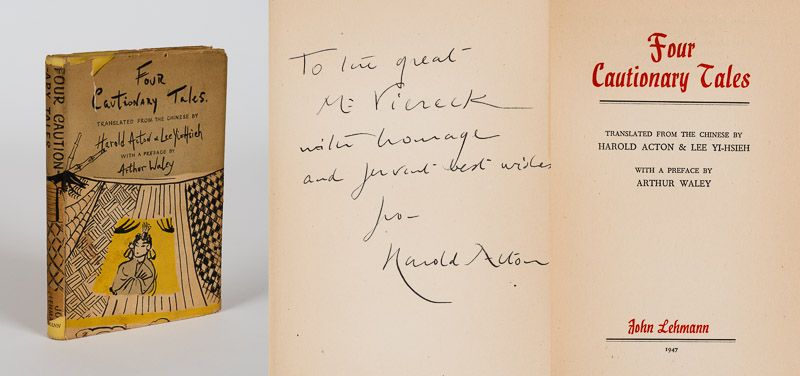 FOUR CAUTION
ARY TALES
Four
Cautionary Tales.
TRANSLATED FROM THE CHINESE BY
Harold Acton & Lee Yi-Hsieh
WITH A PREFACE BY
Arthur Waley
To the great
Mr Viereck
with homage
and fervent best wishes
from
Harold Acton
Four
Cautionary Tales
TRANSLATED FROM THE CHINESE BY
HAROLD ACTON & LEE YI-HSIEH
WITH A PREFACE BY
ARTHUR WALEY
John Lehmann
1947